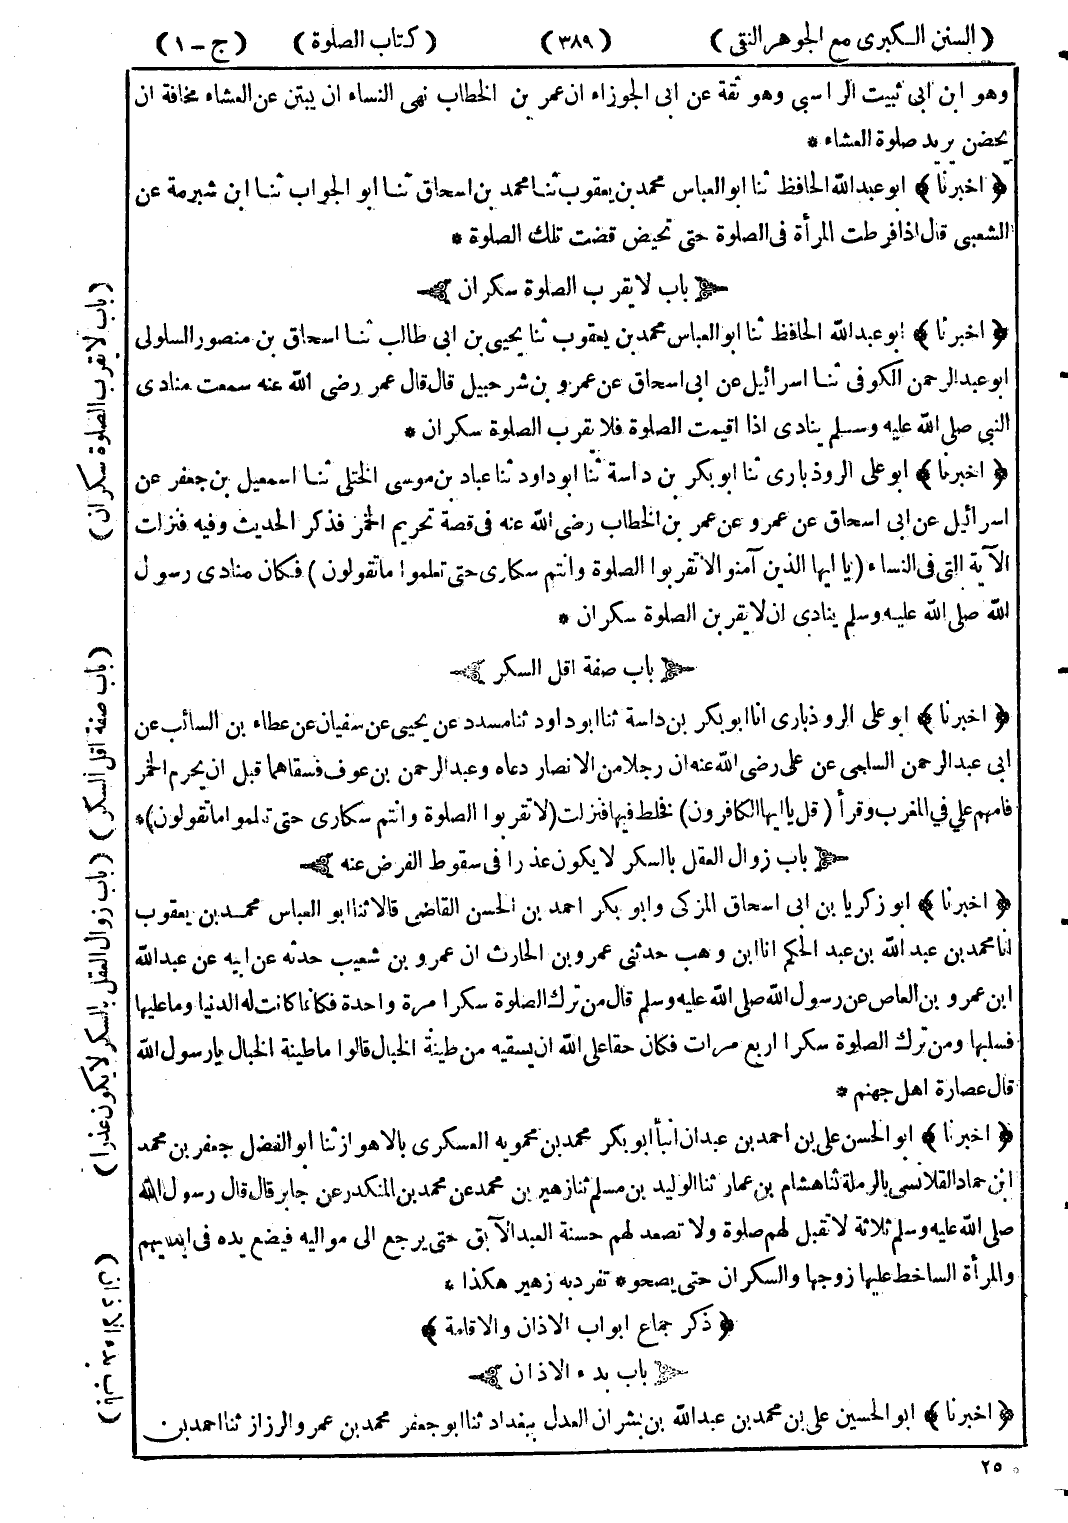 ( السنن الكبرى مع الجوهر النقى ) ( ٣٨٩ ) ( كتاب الصلوة ) ( ج – ١ )
وهو ابن ابى ثبيت الراسبي وهو ثقة عن ابى الجوزاء ان عمر بن الخطاب نهى النساء ان يبتن عن العشاء مخافة ان
يحضن يريد صلوة العشاء *
﴿ اخبرنا ﴾ ابو عبدالله الحافظ ثنا ابو العباس محمد بن يعقوب ثنا محمد بن اسحاق ثنا ابو الجواب ثنا ابن شبرمة عن
الشعبى قال اذا فرطت المرأة فى الصلوة حتى تحيض قضت تلك الصلوة *
باب لا يقرب الصلوة سكران
﴿ اخبرنا ﴾ ابو عبدالله الحافظ ثنا ابو العباس محمد بن يعقوب ثنا يحيى بن ابى طالب ثنا اسحاق بن منصور السلولى
ابو عبدالرحمن الكوفى ثنا اسرائيل عن ابى اسحاق عن عمرو بن شرحبيل قال قال عمر رضى الله عنه سمعت منادى
النبى صلى الله عليه وسلم ينادى اذا اقيمت الصلوة فلا يقرب الصلوة سكران *
﴿ اخبرنا ﴾ ابو على الروذبارى ثنا ابو بكر بن داسة ثنا ابو داود ثنا عباد بن موسى الختلى ثنا اسمعيل بن جعفر عن
اسرائيل عن ابى اسحاق عن عمرو عن عمر بن الخطاب رضى الله عنه فى قصة تحريم الخمر فذكر الحديث وفيه فنزلت
الآية التى فى النساء ( يا ايها الذين آمنوا لا تقربوا الصلوة وانتم سكارى حتى تعلموا ما تقولون ) فكان منادى رسول
الله صلى الله عليه وسلم ينادى ان لا يقربن الصلوة سكران *
باب صفة اقل السكر
﴿ اخبرنا ﴾ ابو على الروذبارى انا ابو بكر بن داسة ثنا ابو داود ثنا مسدد عن يحيى عن سفيان عن عطاء بن السائب عن
ابى عبدالرحمن السلمى عن على رضى الله عنه ان رجلا من الانصار دعاه وعبدالرحمن بن عوف فسقاهما قبل ان يحرم الخمر
فامهم علي في المغرب وقرأ ( قل يا ايها الكافرون ) فخلط فيها فنزلت ( لا تقربوا الصلوة وانتم سكارى حتى تعلموا ما تقولون ) *
باب زوال العقل بالسكر لا يكون عذرا فى سقوط الفرض عنه
﴿ اخبرنا ﴾ ابو زكريا بن ابى اسحاق المزكى وابو بكر احمد بن الحسن القاضى قالا ثنا ابو العباس محمد بن يعقوب
انا محمد بن عبد الله بن عبد الحكم انا ابن وهب حدثنى عمرو بن الحارث ان عمرو بن شعيب حدثه عن ابيه عن عبدالله
ابن عمرو بن العاص عن رسول الله صلى الله عليه وسلم قال من ترك الصلوة سكرا مرة واحدة فكانما كانت له الدنيا وما عليها
فسلبها ومن ترك الصلوة سكرا اربع مرات فكان حقا على الله ان يسقيه من طينة الخبال قالوا ما طينة الخبال يا رسول الله
قال عصارة اهل جهنم *
﴿ اخبرنا ﴾ ابو الحسن على بن احمد بن عبدان انبأ ابو بكر محمد بن محمويه العسكرى بالاهواز ثنا ابو الفضل جعفر بن محمد
ابن حماد القلانسى بالرملة ثنا هشام بن عمار ثنا الوليد بن مسلم ثنا زهير بن محمد عن محمد بن المنكدر عن جابر قال قال رسول الله
صلى الله عليه وسلم ثلاثة لا تقبل لهم صلوة ولا تصعد لهم حسنة العبد الآبق حتى يرجع الى مواليه فيضع يده فى ايديهم
والمرأة الساخط عليها زوجها والسكران حتى يصحو * تفرد به زهير هكذا *
﴿ ذكر جماع ابواب الاذان والاقامة ﴾
باب بدء الاذان
﴿ اخبرنا ﴾ ابو الحسين على بن محمد بن عبدالله بن بشران العدل ببغداد ثنا ابو جعفر محمد بن عمرو الرزاز ثنا احمد بن
٢٥
( باب لا يقرب الصلوة سكران )
( باب صفة اقل السكر )
( باب زوال العقل بالسكر لا يكون عذرا )